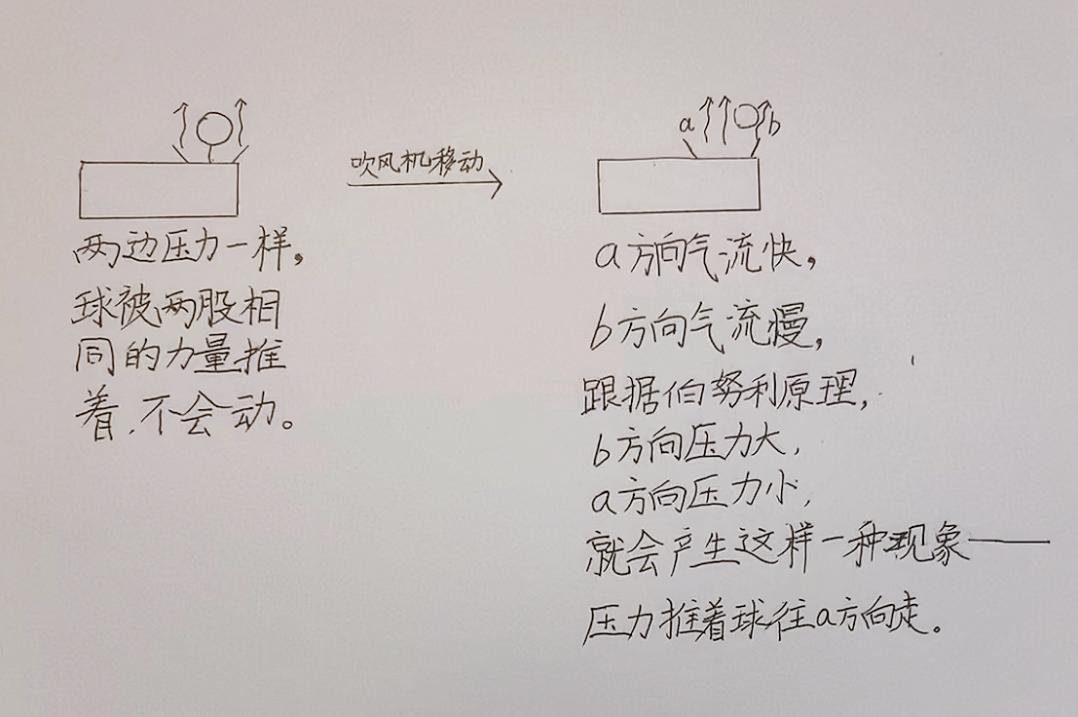 吹风机移动
a
b
两边压力一样，
球被两股相
同的力量推
着，不会动。
a方向气流快，
b方向气流慢，
跟据伯努利原理，
b方向压力大，
a方向压力小，
就会产生这样一种现象——
压力推着球往a方向走。